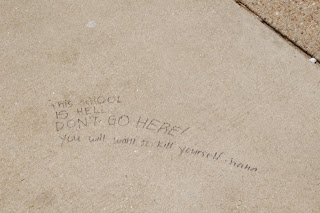 THIS SCHOOL
IS HELL
DON'T GO HERE!
you will want to kill yourself